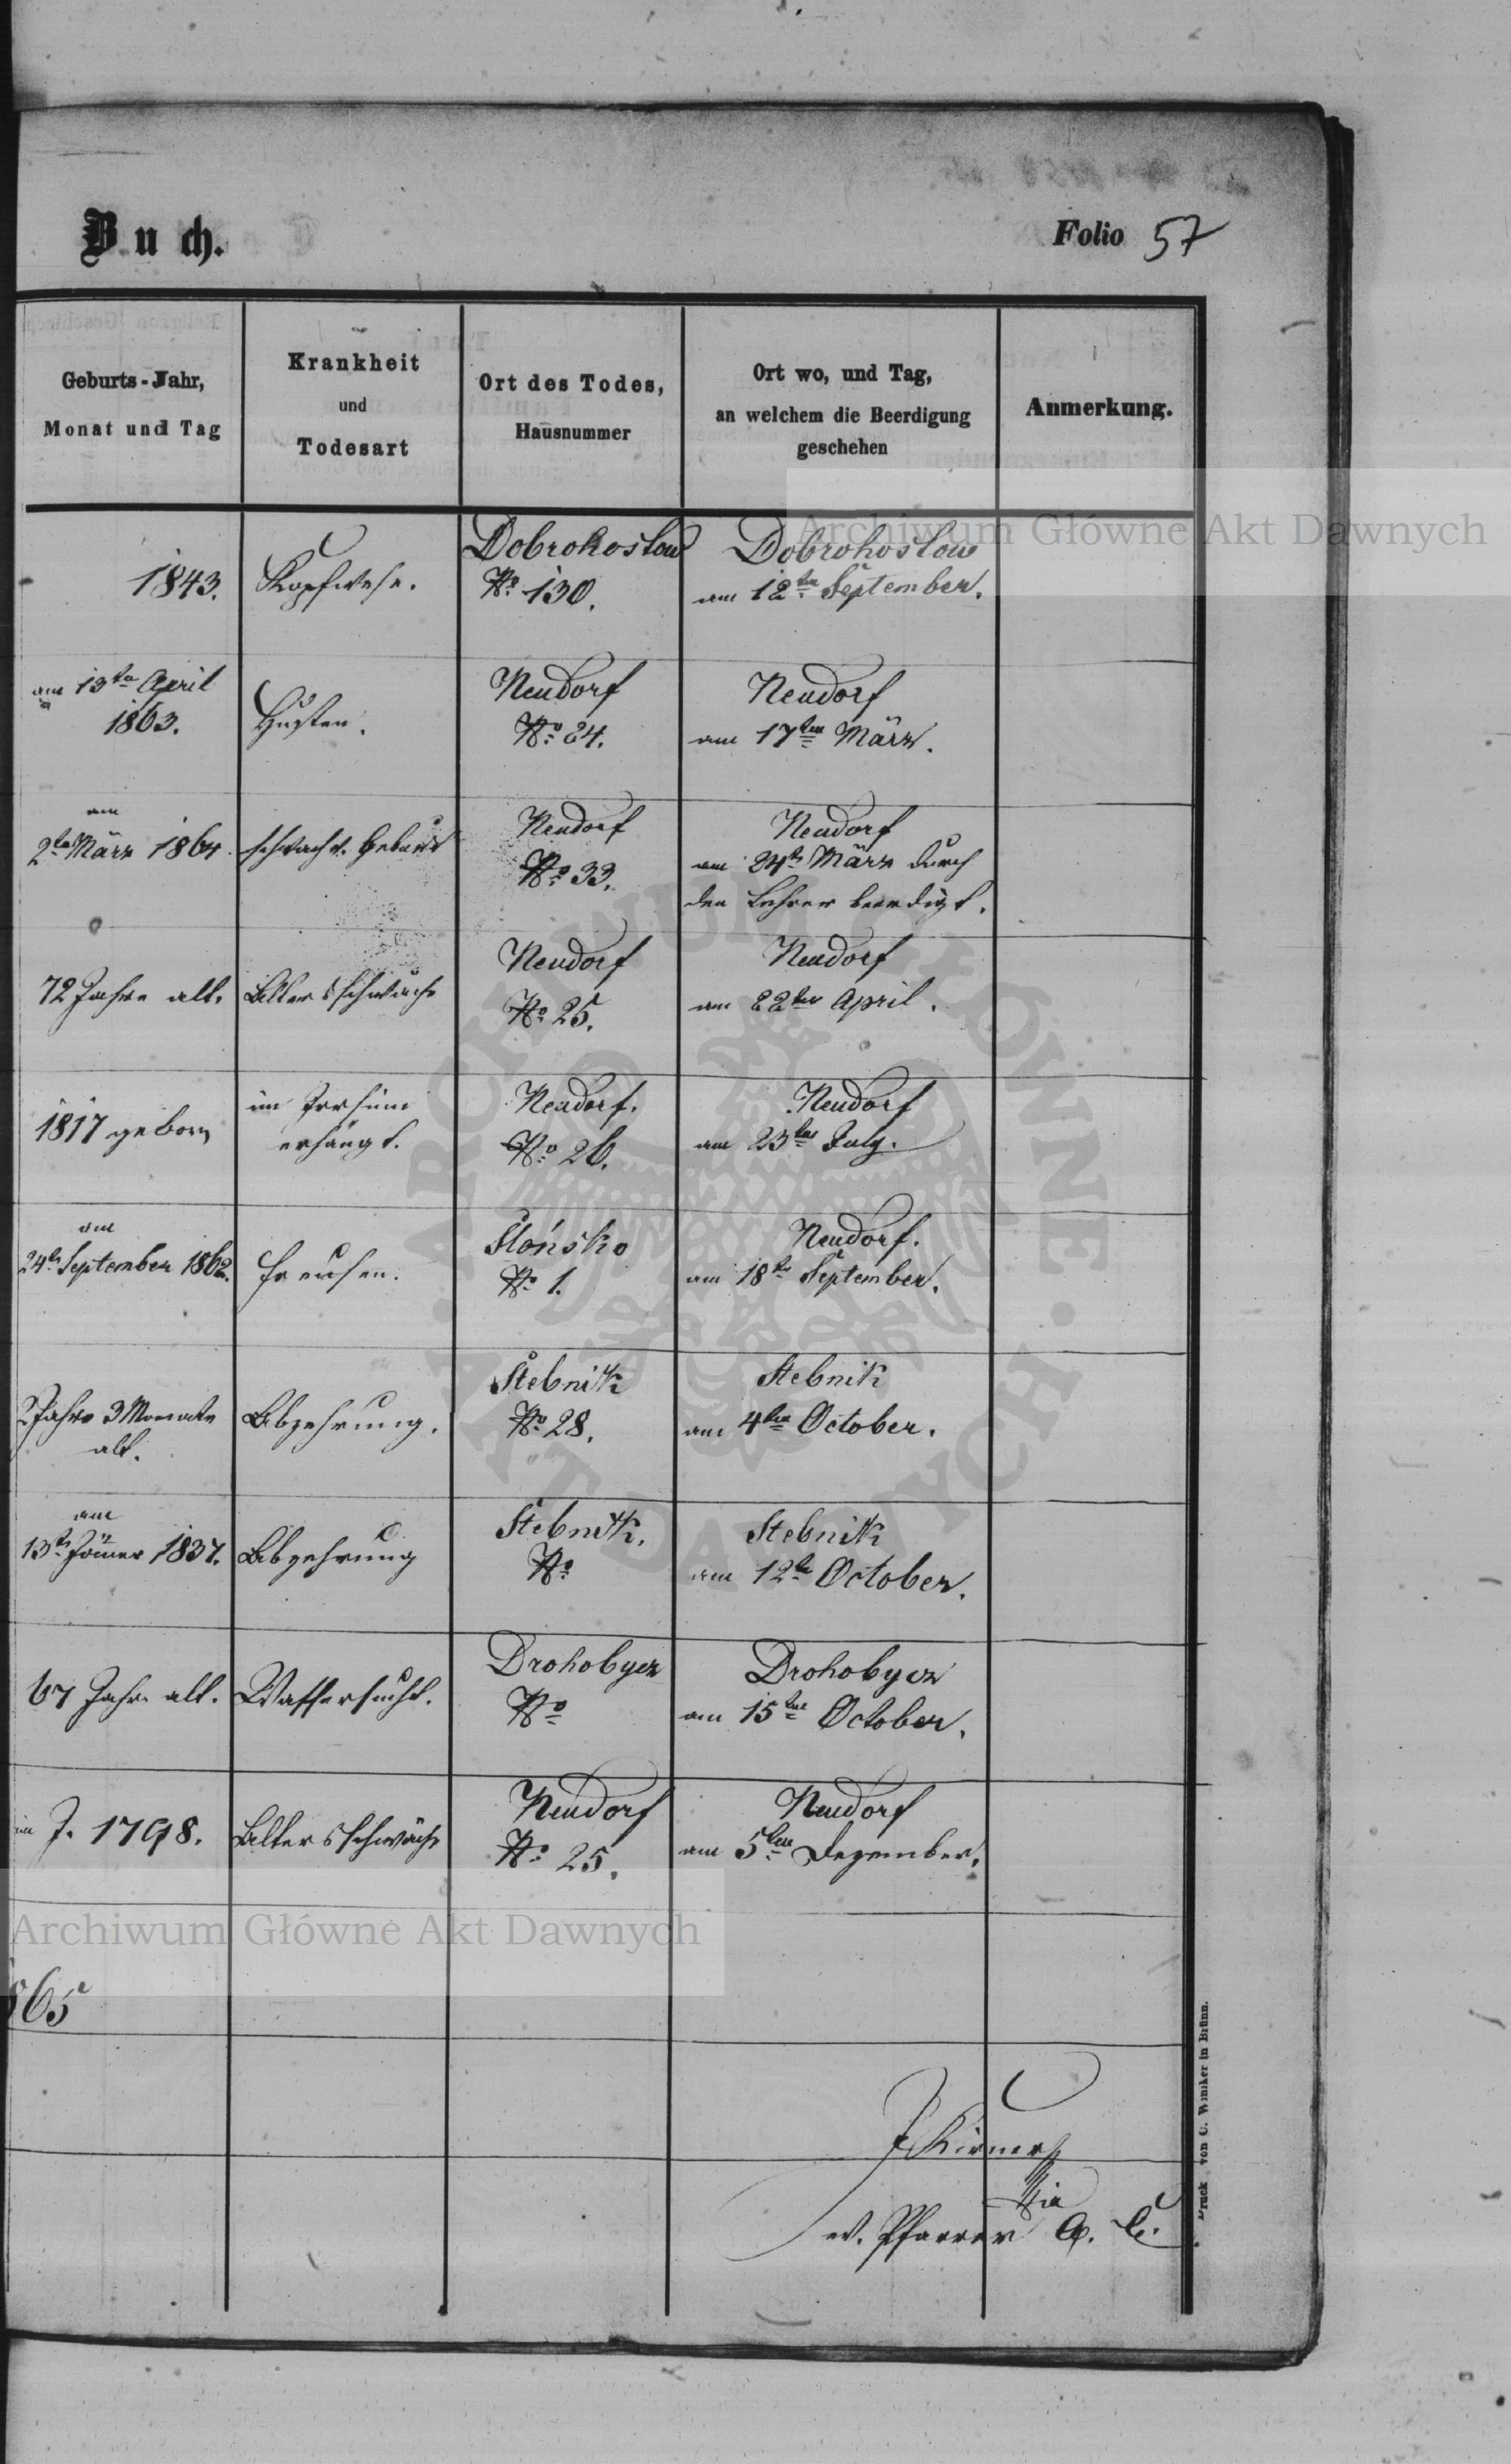 Buch.
Folio 57
Geburts-Jahr,
Monat und Tag
Krankheit
und
Todesart
Ort des Todes,
Hausnummer
Ort wo, und Tag,
an welchem die Beerdigung
geschehen
Anmerkung.
Archiwum Główne Akt Dawnych
1843.
Kopfwehe.
Dobrohostow
No 130.
Dobrohostow
am 12ten September.
am 13ten April
1863.
Husten.
Neudorf
No 24.
Neudorf
am 17ten März.
am
2ten März 1864.
schwache Geburt
Neudorf
No 33.
Neudorf
am 24ten März durch
den Lehrer beerdigt.
72 Jahre alt.
Altersschwäche
Neudorf
No 25.
Neudorf
am 22ten April.
1817 geborn
im Irrsinn
erhängt.
Neudorf.
No 26.
Neudorf
am 23ten July.
am
24ten September 1862.
Freisen.
Słońsko
No 1.
Neudorf.
am 18ten September.
2 Jahre 3 Monate
alt.
Abzehrung.
Stebnik
No 28.
Stebnik
am 4ten October.
am
13ten Jänner 1837.
Abzehrung
Stebnik.
No
Stebnik
am 12ten October.
67 Jahre alt.
Wassersucht.
Drohobycz
No
Drohobycz
am 15ten October.
im J. 1798.
Altersschwäche
Neudorf
No 25.
Neudorf
am 5ten Dezember.
Archiwum Główne Akt Dawnych
865
ev. Pfarrer A. C.
Druck von C. Winiker in Brünn.
ARCHIWUM GŁÓWNE
AKT DAWNYCH